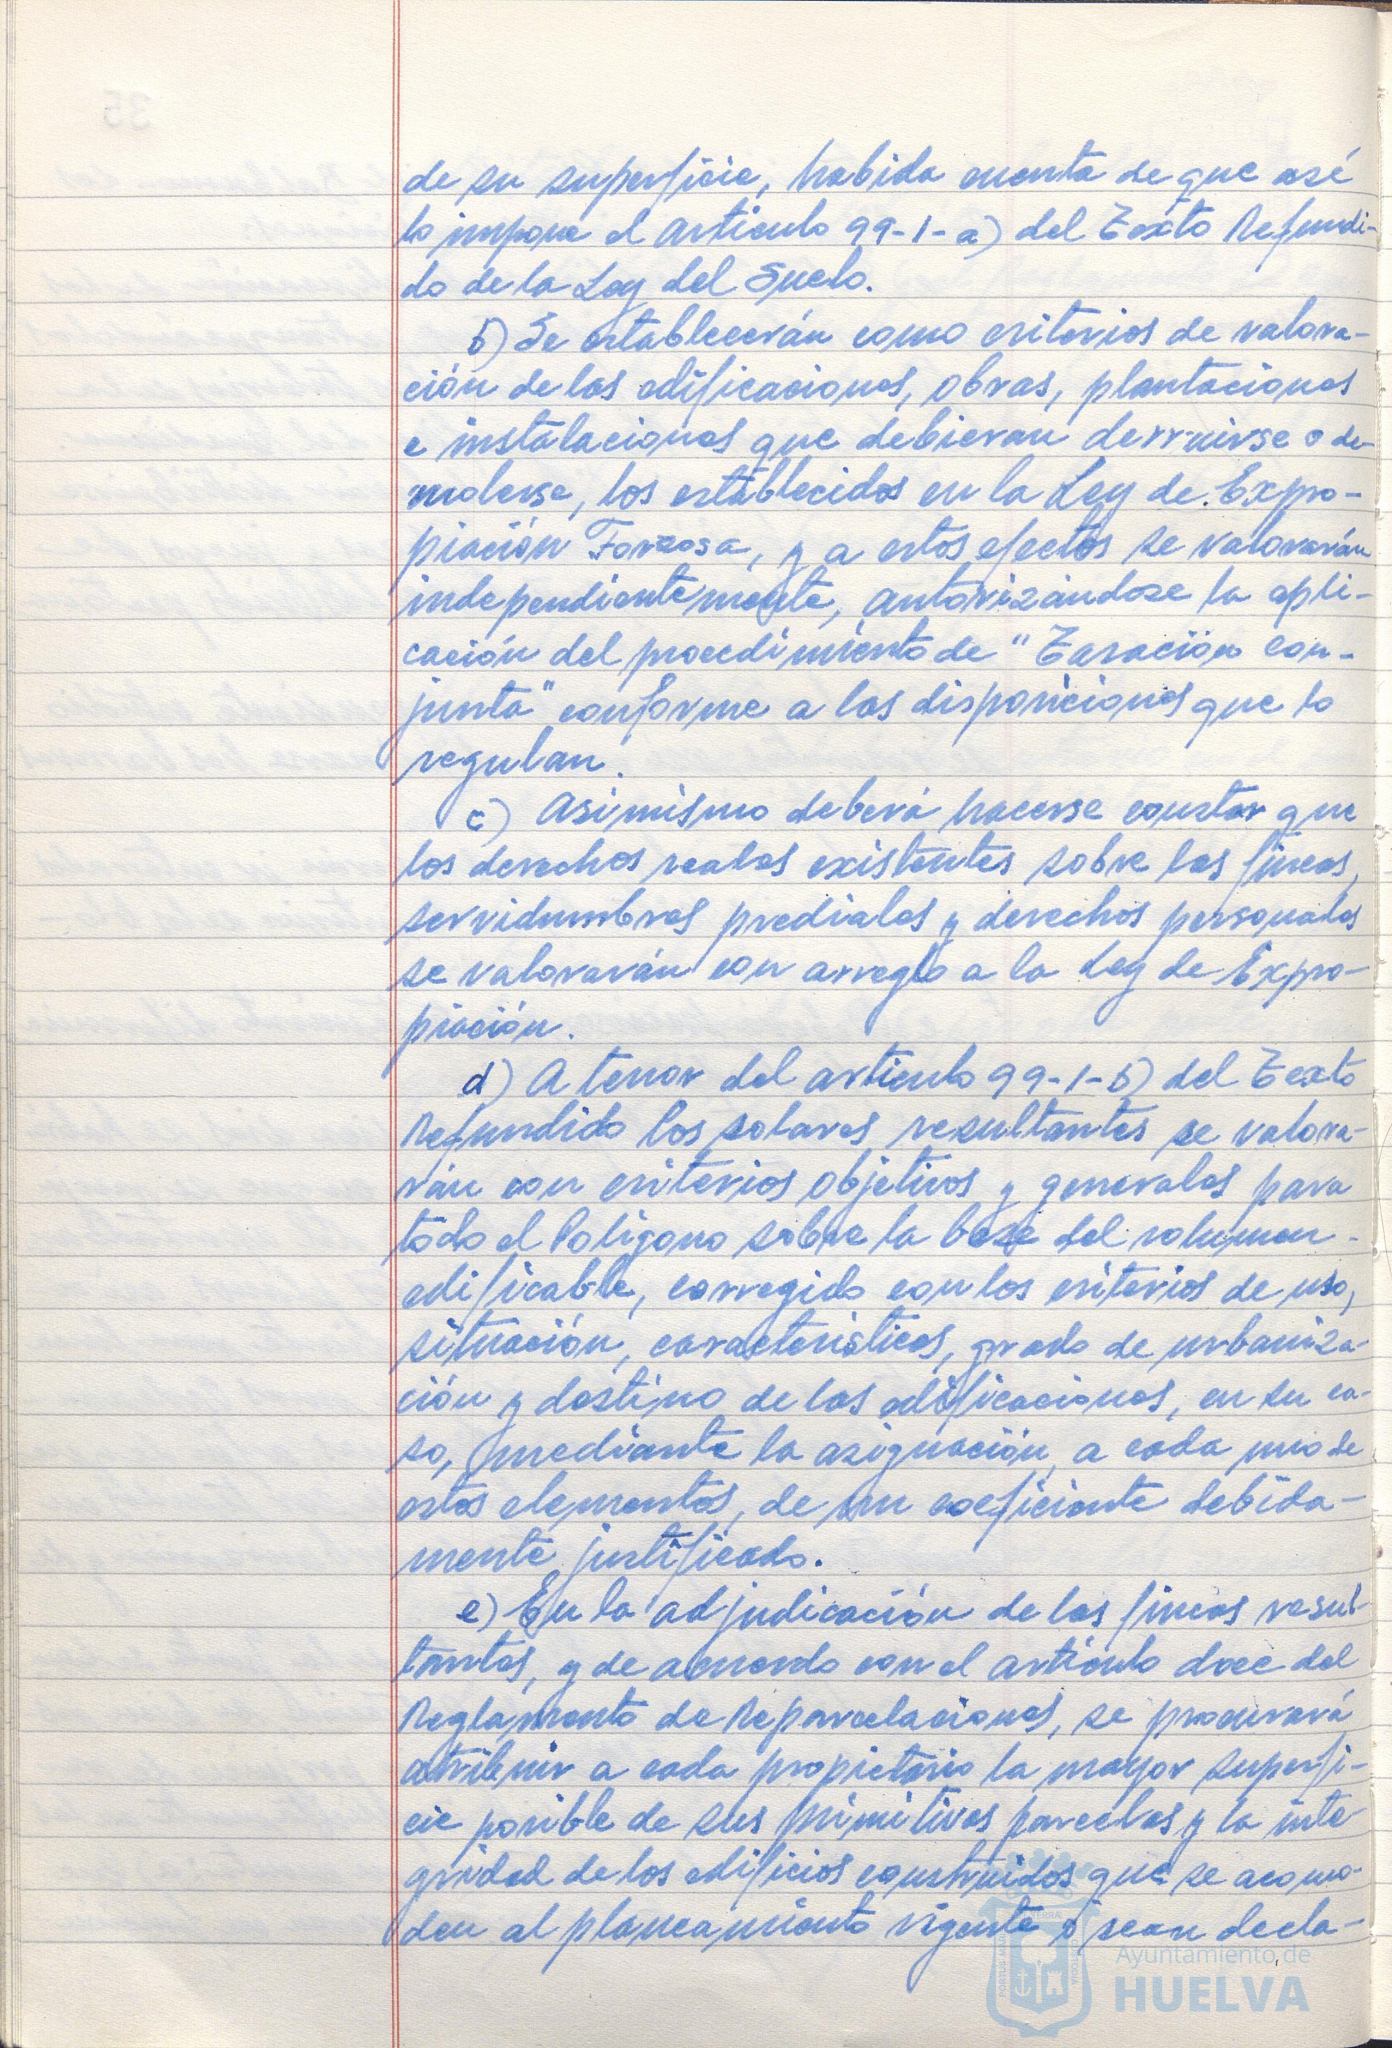 de su superficie, habida cuenta de que así
lo impone el articulo 99-1-a) del Texto Refundi-
do de la Ley del Suelo.
b) Se establecerán como criterios de valora-
ción de las edificaciones, obras, plantaciones
e instalaciones que debieran derruirse o de-
molerse, los establecidos en la Ley de Expro-
piación Forzosa, y a estos efectos se valorarán
independientemente, autorizándose la apli-
cación del procedimiento de "Tasación con-
junta" conforme a las disposiciones que lo
regulan.
c) Asimismo deberá hacerse constar que
los derechos reales existentes sobre las fincas,
servidumbres prediales y derechos personales
se valorarán con arreglo a la Ley de Expro-
piación.
d) A tenor del articulo 99-1-b) del Texto
Refundido los solares resultantes se valora-
rán con criterios objetivos y generales para
todo el Polígono sobre la base del volumen
edificable, corregido con los criterios de uso,
situación, características, grado de urbaniza-
ción y destino de las edificaciones, en su ca-
so, mediante la asignación, a cada uno de
estos elementos, de un coeficiente debida-
mente justificado.
e) En la adjudicación de las fincas resul-
tantes, y de acuerdo con el artículo doce del
Reglamento de Reparcelaciones, se procurará
atribuir a cada propietario la mayor superfi-
cie posible de sus primitivas parcelas y la inte-
gridad de los edificios construidos que se acomo-
den al planeamiento vigente o sean decla-
Ayuntamiento de
HUELVA